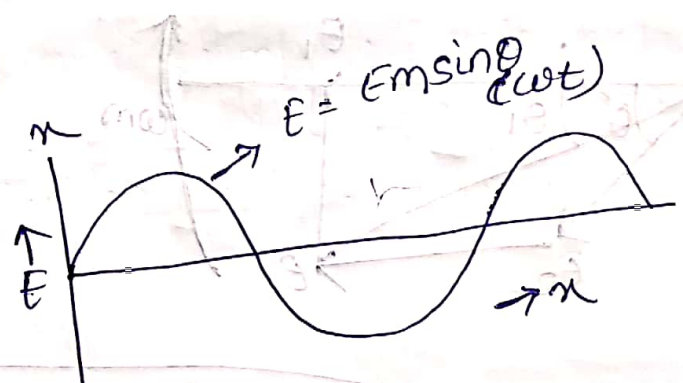 E = Em sinθ
(ωt)
x
↑
E
→ x